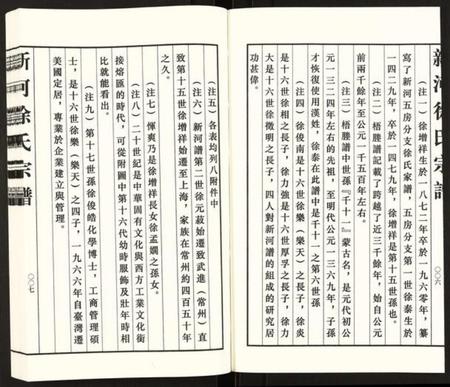 新河徐氏宗譜
〇〇六
(注一) 徐增祥生於一八七二年卒於一九六零年，纂
寫了新河五房分支徐氏家譜，五房分支第一世徐泰生於
一四二九年，卒於一四七九年，徐增祥是第十五世孫也。
(注二) 梧塍譜記載了跨越了近三千餘年，始自公元
前兩千餘年至公元一千五百年左右。
(注三) 梧塍譜中世孫『千十一』蒙古名，是元代初公
元一三二四年左右的先祖，至明代公元一三六九年，子孫
才恢復使用漢姓，徐泰在此譜中是千十一之第六世孫
(注四) 徐俊南是十六世徐樂(樂天)之長子，徐炎
是十六世徐相之長子，徐力強是十六世厚孚之長子，徐力
大是十六世徐微明之長子，四人對新河譜的組成的研究居
功甚偉。
(注五) 各表均列八附件中
(注六) 新河譜第二世徐元敍始遷致武進(常州)直
致第十五世徐增祥始遷至上海，家族在常州約四百五十年
之久。
(注七) 惲爽乃是徐增祥長女徐孟嫻之孫女。
(注八) 二十世紀是中華固有文化與西方工業文化銜
接熔匯的時代，可從附圖中第十六代幼時服飾及壯年時相
比就能看出。
(注九) 第十七世孫徐俊皓化學博士，工商管理碩
士，是十六世徐樂(樂天)之四子，一九六六年自臺灣遷
美國定居，專業於企業建立與管理。
新河徐氏宗譜
〇〇七